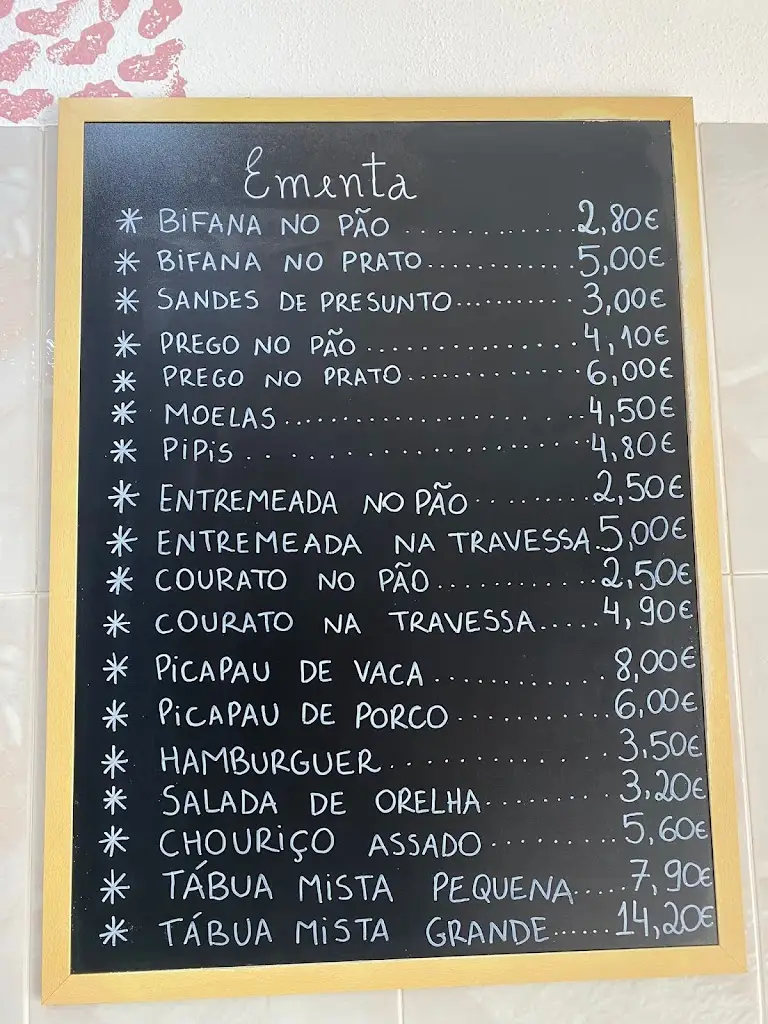 Ementa
* BIFANA NO PÃO ............. 2,80€
* BIFANA NO PRATO ............. 5,00€
* SANDES DE PRESUNTO ............. 3,00€
* PREGO NO PÃO ............. 4,10€
* PREGO NO PRATO ............. 6,00€
* MOELAS ............. 4,50€
* PIPIS ............. 4,80€
* ENTREMEADA NO PÃO ............. 2,50€
* ENTREMEADA NA TRAVESSA. 5,00€
* COURATO NO PÃO ............. 2,50€
* COURATO NA TRAVESSA..... 4,90€
* PICAPAU DE VACA ............. 8,00€
* PICAPAU DE PORCO ............. 6,00€
* HAMBURGUER ............. 3,50€
* SALADA DE ORELHA ............. 3,20€
* CHOURIÇO ASSADO ............. 5,60€
* TÁBUA MISTA PEQUENA..... 7,90€
* TÁBUA MISTA GRANDE...... 14,20€